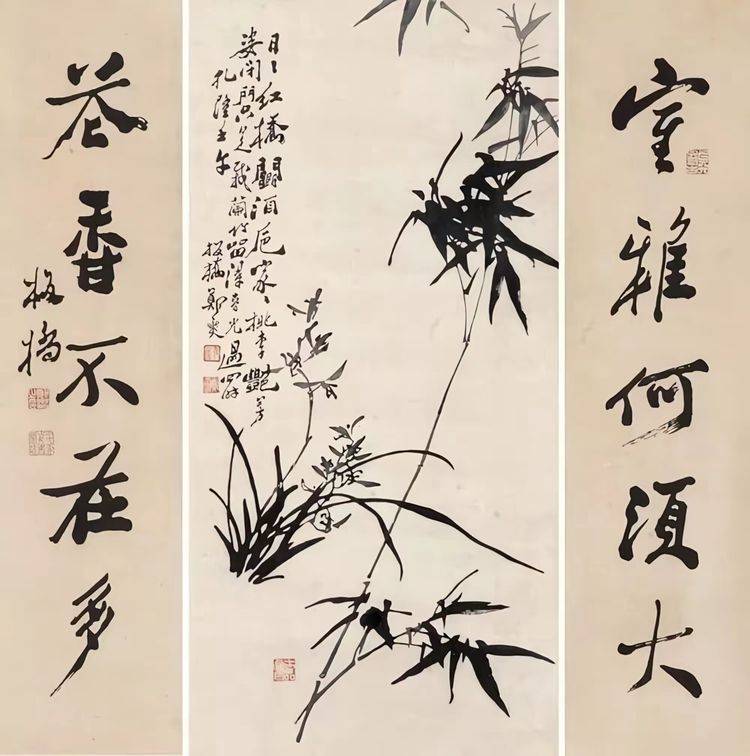 室雅何須大
日〻紅橋鬭酒卮家〻桃李艷芳
姿閉門只是栽蘭竹留得春光過四時
乾隆壬午
板橋鄭燮
花香不在多
板橋